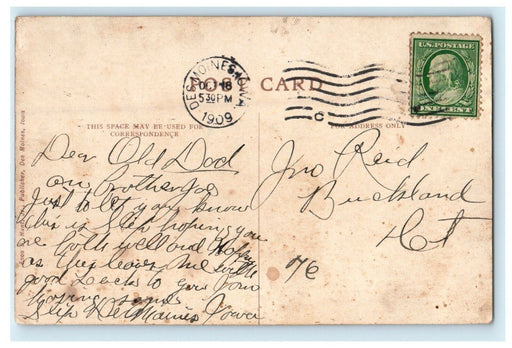 DES MOINES, IOWA
OCT 18
5 30 PM
1909
POST CARD
U.S. POSTAGE
ONE CENT
THIS SPACE MAY BE USED FOR
CORRESPONDENCE
FOR ADDRESS ONLY
Publisher, Des Moines, Iowa
Dear Old Dad
Brother Joe
Just to let you know
this is Slip hoping you
are both well and Happy
as this leaves me with
good Luck to you from
Slip Des Moines Iowa
Jno Reid
Buckland
Ct